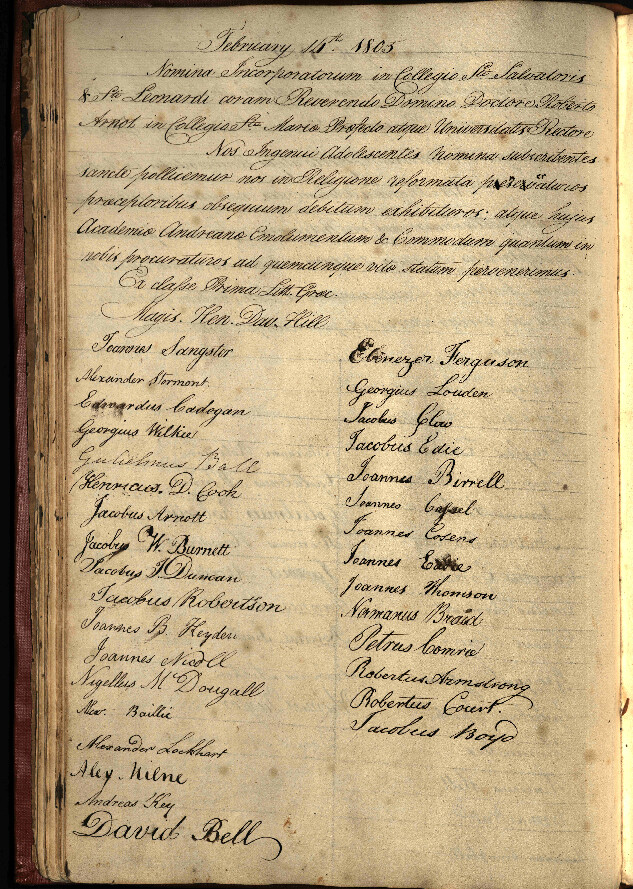 February 14th. 1805
Nomina Incorporatorum in Collegio Sti Salvatoris
& Sti Leonardi coram Reverendo Domino Doctore Roberto
Arnot in Collegio Stæ Mariæ Præfecto atque Universitatis Rectore
Nos Ingenui Adolescentes nomina subscribentes
sancte pollicemur nos in Religione reformata perseveraturos
præceptoribus obsequium debitum exhibituros; atque hujus
Academiæ Andreanæ Emolumentum & Commodum quantum in
nobis procuraturos ad quemcunque vitæ statum pervenerimus.
Ex classe Prima Litt. Græc
Magis. Hen. Dav. Hill
Joannes Sangster
Alexander Stormont.
Edwardus Cadogan
Georgius Wilkie
Gulielmus Ball
Henricus. D. Cock
Jacobus Arnott
Jacobus W. Burnett
Jacobus Duncan
Jacobus Robertson
Joannes B. Heyden
Joannes Nicoll
Nigellus McDougall
Alex. Baillie
Alexander Lockhart
Alex Milne
Andreas Key
David Bell
Ebenezer Ferguson
Georgius Louden
Jacobus Glow
Jacobus Edie
Joannes Birrell
Joannes
Joannes Cosens
Joannes
Joannes Thomson
Normanus Braid
Petrus Comrie
Robertus Armstrong
Robertus Couert.
Jacobus Boyd